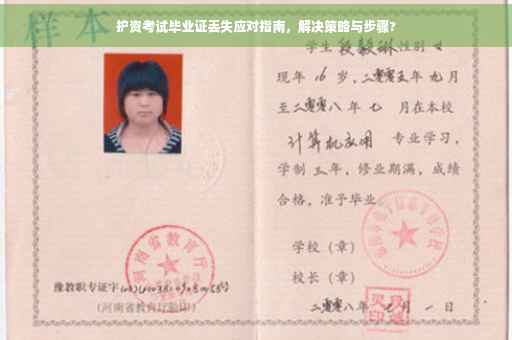 护资考试毕业证丢失应对指南，解决策略与步骤?
样本
学生 段毅琳 性别 女
现年 16 岁，二零零五年 九月
至二零零八年 七 月在本校
计算机应用 专业学习，
学制 三年，修业期满，成绩
合格，准予毕业
学校（章）
校长（章）
二零零八年 七月 一日
河南省教育厅
豫教职专证字
（河南省教育厅验印）